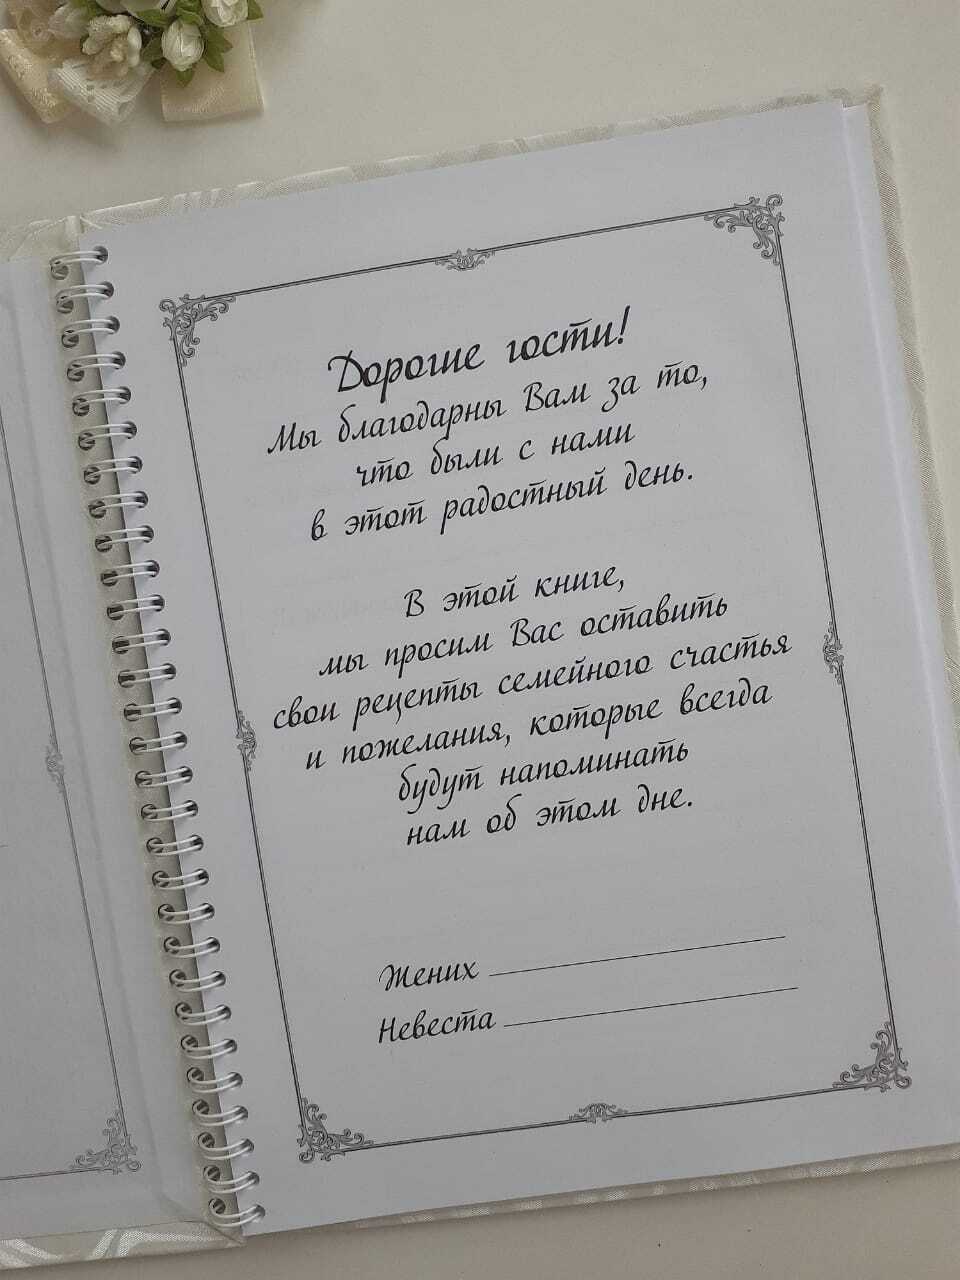 Дорогие гости!
Мы благодарны Вам за то,
что были с нами
в этот радостный день.
В этой книге,
мы просим Вас оставить
свои рецепты семейного счастья
и пожелания, которые всегда
будут напоминать
нам об этом дне.
Жених
Невеста